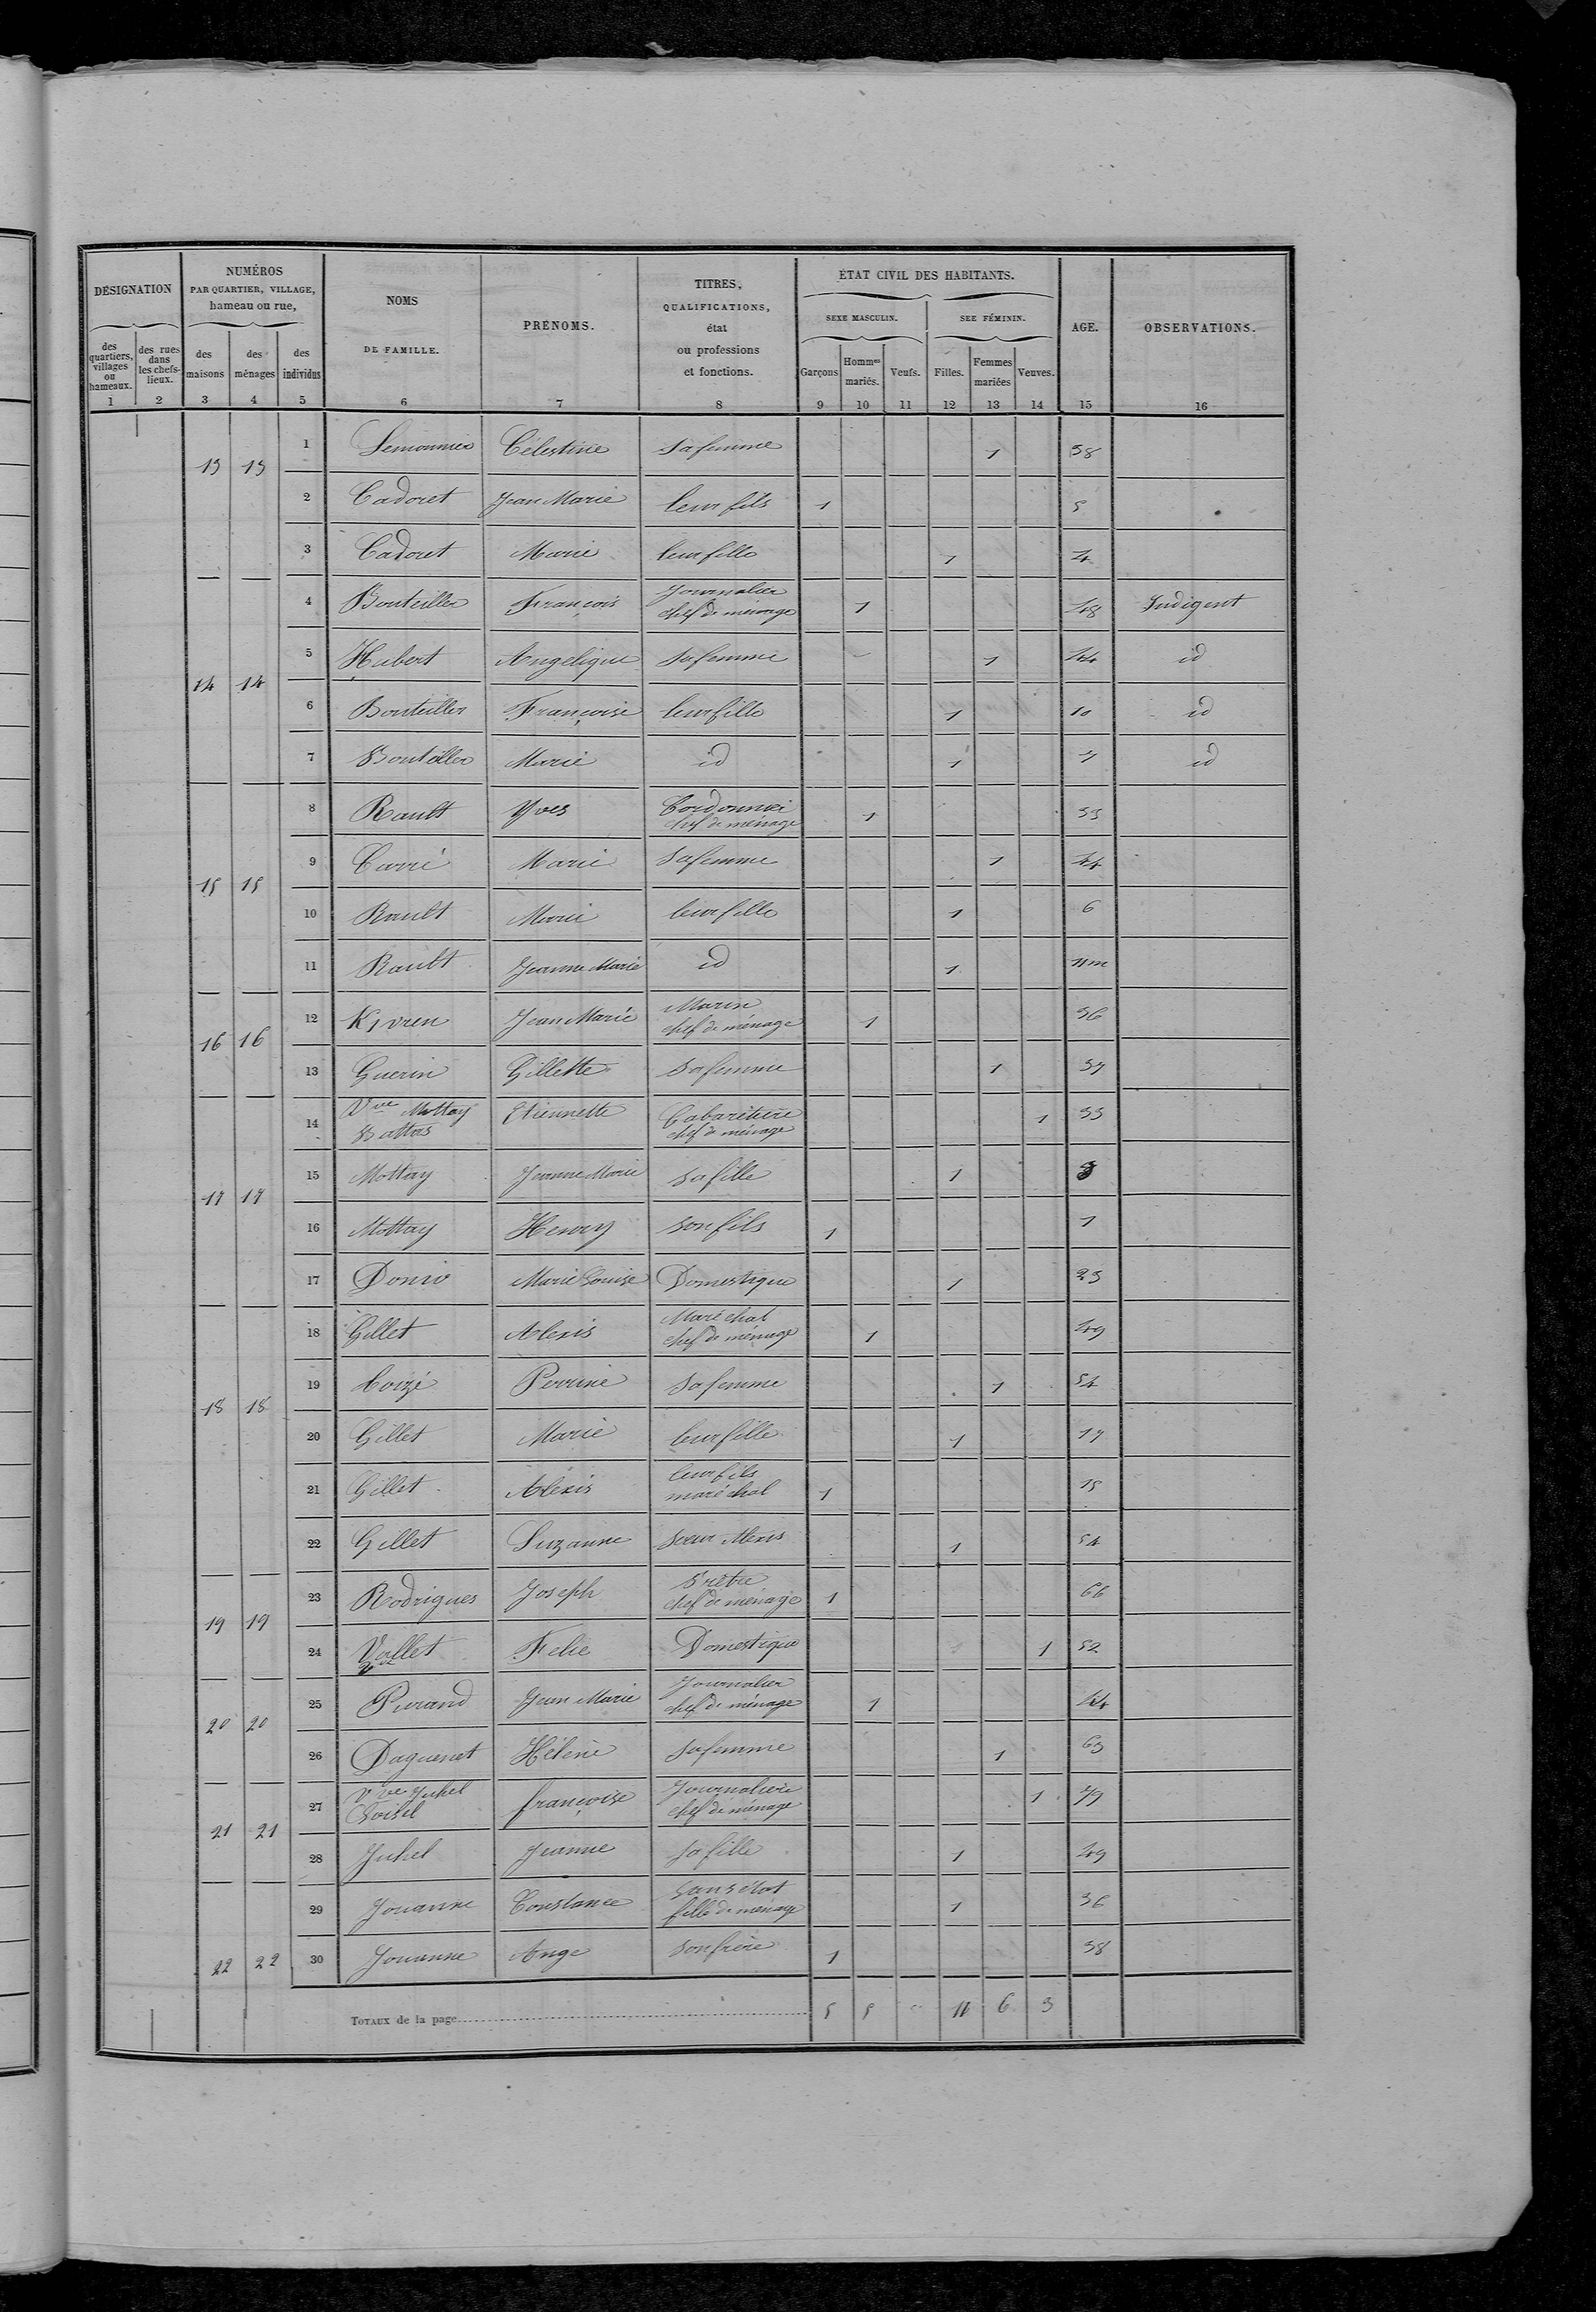 DÉSIGNATION
NUMÉROS
PAR QUARTIER, VILLAGE,
hameau ou rue,
NOMS
DE FAMILLE.
PRÉNOMS.
TITRES,
QUALIFICATIONS,
état
ou professions
et fonctions.
ÉTAT CIVIL DES HABITANTS.
SEXE MASCULIN.
SEE FÉMININ.
AGE.
OBSERVATIONS.
des quartiers, villages ou hameaux.
des rues dans les chefs-lieux.
des maisons
des ménages
des individus
Garçons
Hommes mariés.
Veufs.
Filles.
Femmes mariées
Veuves.
1 2 3 4 5 6 7 8 9 10 11 12 13 14 15 16
13 13 1 Lemonnier Célestine sa femme 1 38
2 Cadoret Jean Marie leur fils 1 5
3 Cadoret Marie leur fille 1 4
4 Bouteiller François Journalier chef de ménage 1 48 Indigent
14 14 5 Hubert Angelique sa femme 1 44 id
6 Bouteiller Françoise leur fille 1 10 id
7 Bouteiller Marie id 1 7 id
8 Rault Yves Cordonnier chef de ménage 1 33
15 15 9 Carré Marie sa femme 1 44
10 Rault Marie leur fille 1 6
11 Rault Jeanne Marie id 1 11m
16 16 12 Jean Marie Marin chef de ménage 1 36
13 Guerin Gillette sa femme 1 37
14 Vve Mottay Battas Etiennette Cabaretière chef de ménage 1 33
17 17 15 Mottay Jeanne Marie sa fille 1
16 Mottay Henry son fils 1 1
17 Donio Marie Louise Domestique 1 23
18 Gillet Alexis Maréchal chef de ménage 1 49
18 18 19 Corzé Perrine sa femme 1 54
20 Gillet Marie leur fille 1 17
21 Gillet Alexis leur fils maréchal 1 15
22 Gillet Suzanne soeur Alexis 1 54
19 19 23 Rodrigues Joseph Prêtre chef de ménage 1 66
24 Vallet Vve Domestique 1 52
20 20 25 Durand Jean Marie Journalier chef de ménage 1 44
26 Daguenet Hélène sa femme 1 63
21 21 27 Vve Juhel Loisel françoise Journalière chef de ménage 1 79
28 Juhel Jeanne sa fille 1 49
29 Jouanne Constance sans état fille de ménage 1 36
22 22 30 Jouanne Ange son frère 1 38
TOTAUX de la page 5 5 " 11 6 3